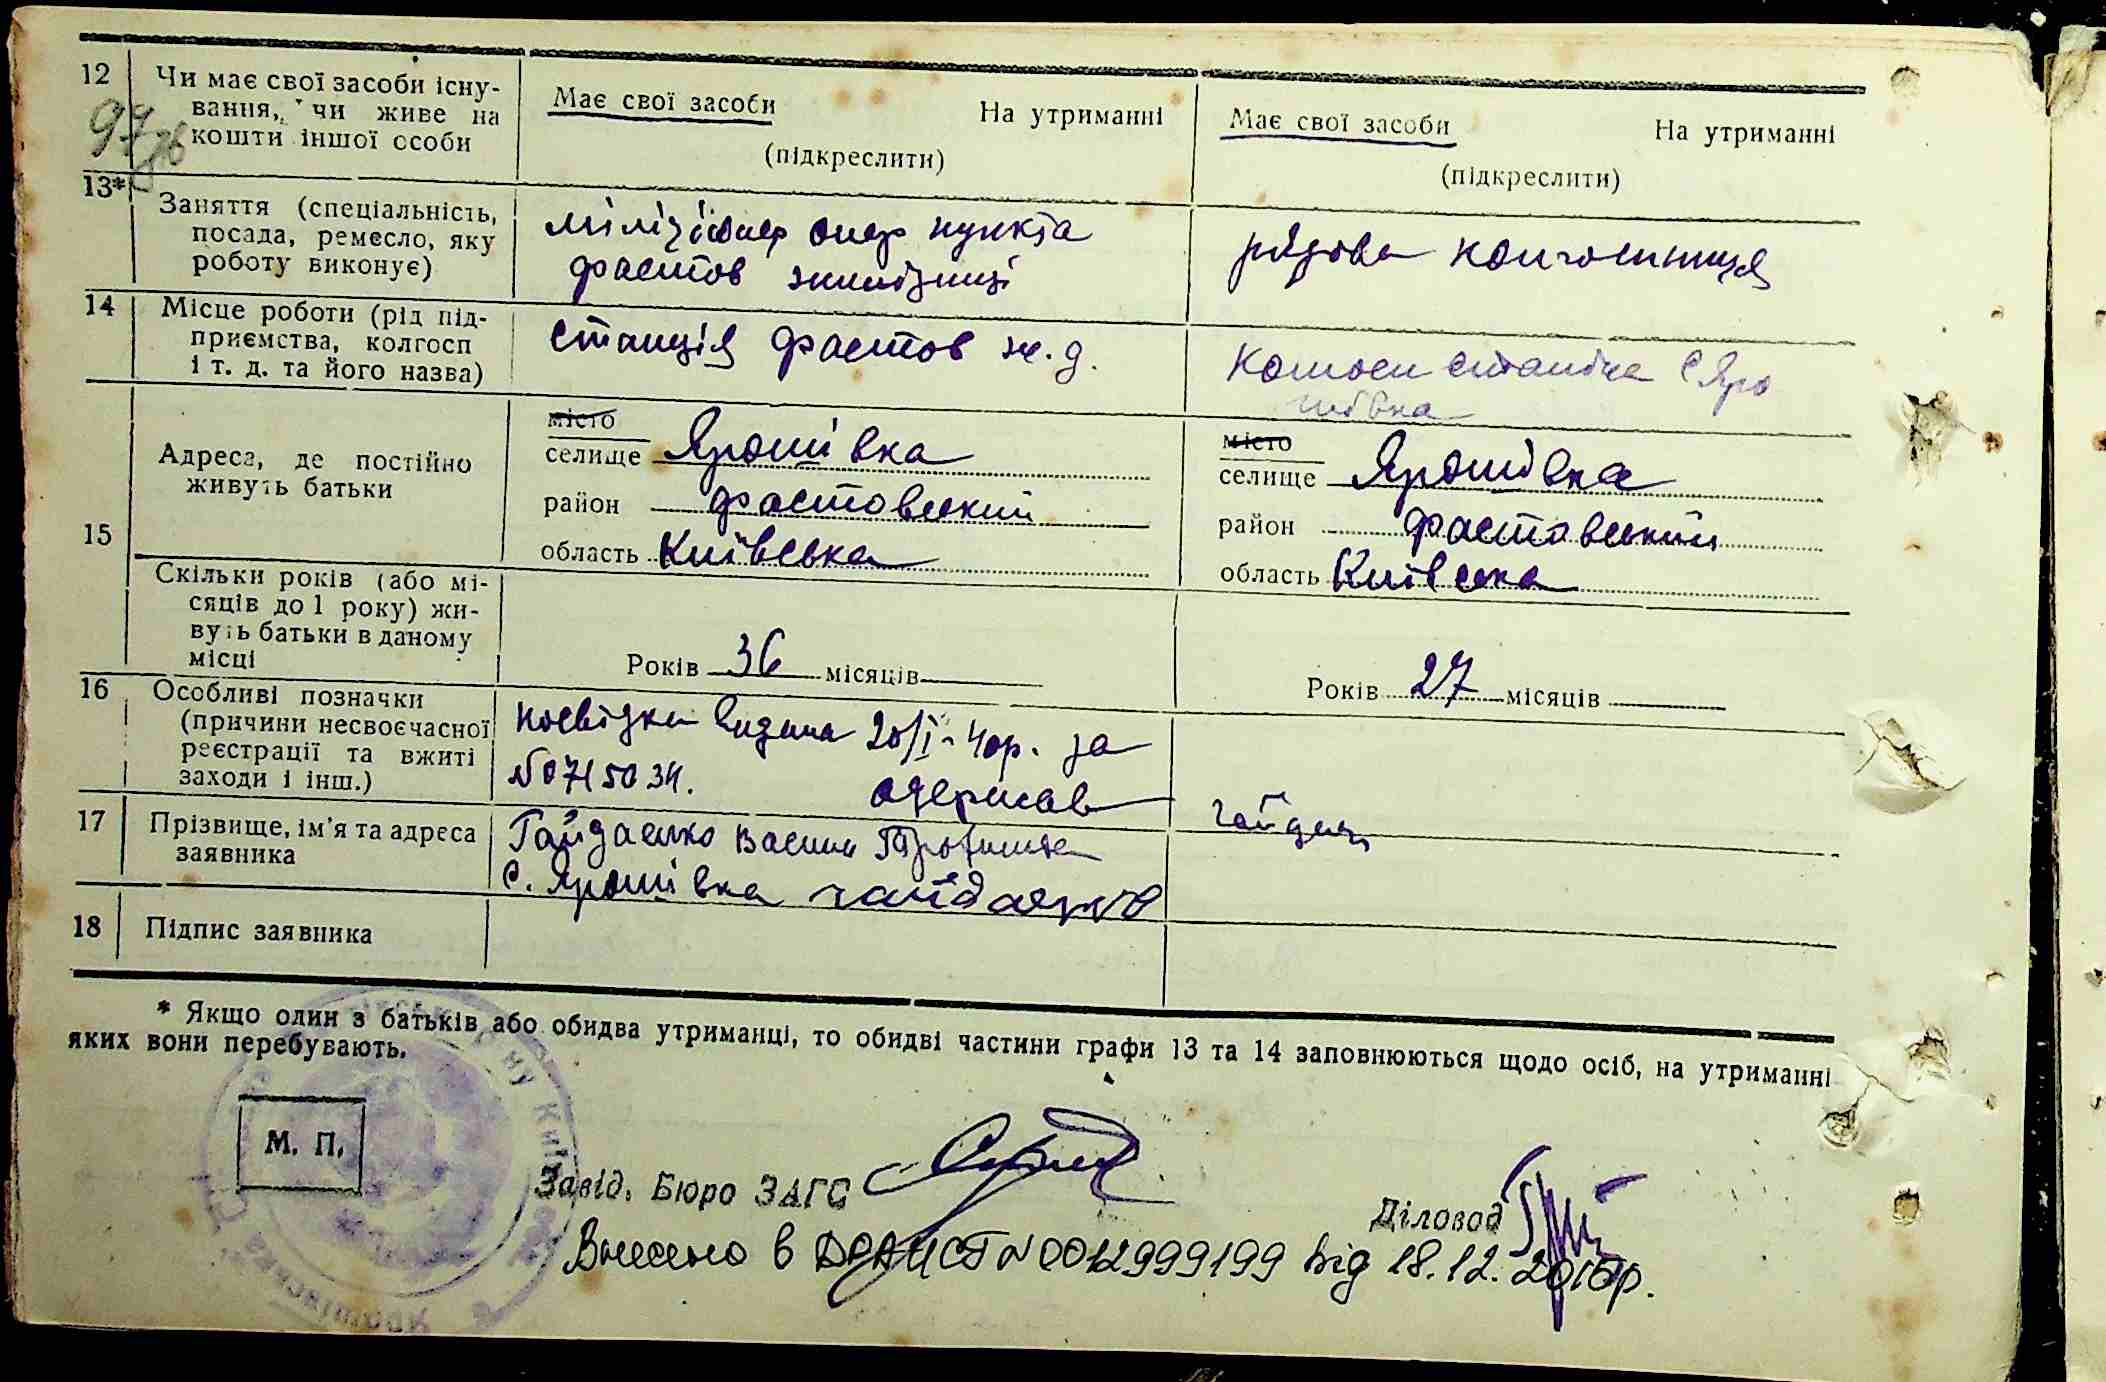 12 Чи має свої засоби існу-
вання, чи живе на
кошти іншої особи
Має свої засоби На утриманні
(підкреслити)
Має свої засоби На утриманні
(підкреслити)
97
13* Заняття (спеціальність,
посада, ремесло, яку
роботу виконує)
міліціонер опер пункта
фастов залізниці
рядова колгоспниця
14 Місце роботи (рід під-
приємства, колгосп
і т. д. та його назва)
станція фастов ж.д.
с Яро
шівка
15 Адреса, де постійно
живуть батьки
місто
селище Ярошівка
район фастовский
область Київська
місто
селище Ярошівка
район фастовский
область Київська
Скільки років (або мі-
сяців до 1 року) жи-
вуть батьки в даному
місці
Років 36 місяців
Років 27 місяців
16 Особливі позначки
(причини несвоєчасної
реєстрації та вжиті
заходи і інш.)
посвідка видана 20/I-40р. за
№ 0715034. одержав
17 Прізвище, ім'я та адреса
заявника
Гайдаєнко Васил
с. Ярошівка гайдаенко
18 Підпис заявника
* Якщо один з батьків або обидва утриманці, то обидві частини графи 13 та 14 заповнюються щодо осіб, на утриманні
яких вони перебувають.
М. П.
Завід. Бюро ЗАГС
Діловод
Внесено в ДРАЦСГ № 0012999199 від 18.12.2015р.